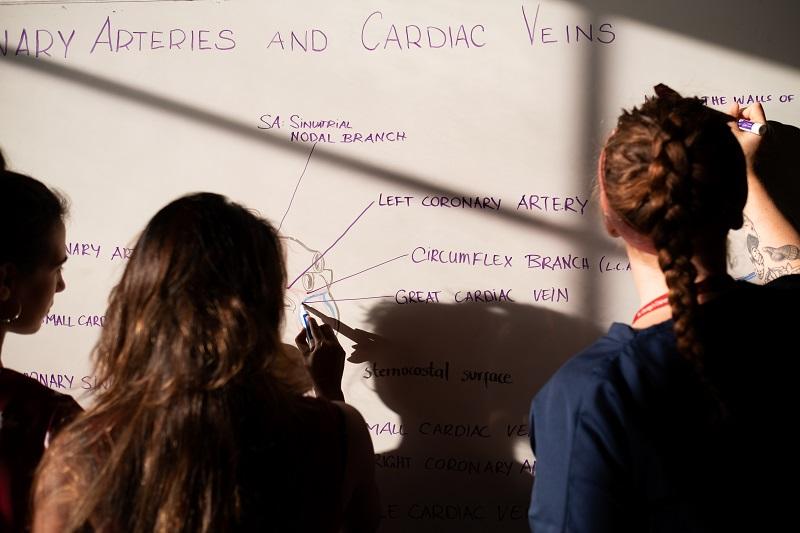 NARY ARTERIES AND CARDIAC VEINS
THE WALLS OF
SA: SINUATRIAL
NODAL BRANCH
LEFT CORONARY ARTERY
NARY AR
CIRCUMFLEX BRANCH (L.C.A
GREAT CARDIAC VEIN
MALL CARD
sternocostal surface
ONARY SI
MALL CARDIAC VE
RIGHT CORONARY A
LE CARDIAC VE